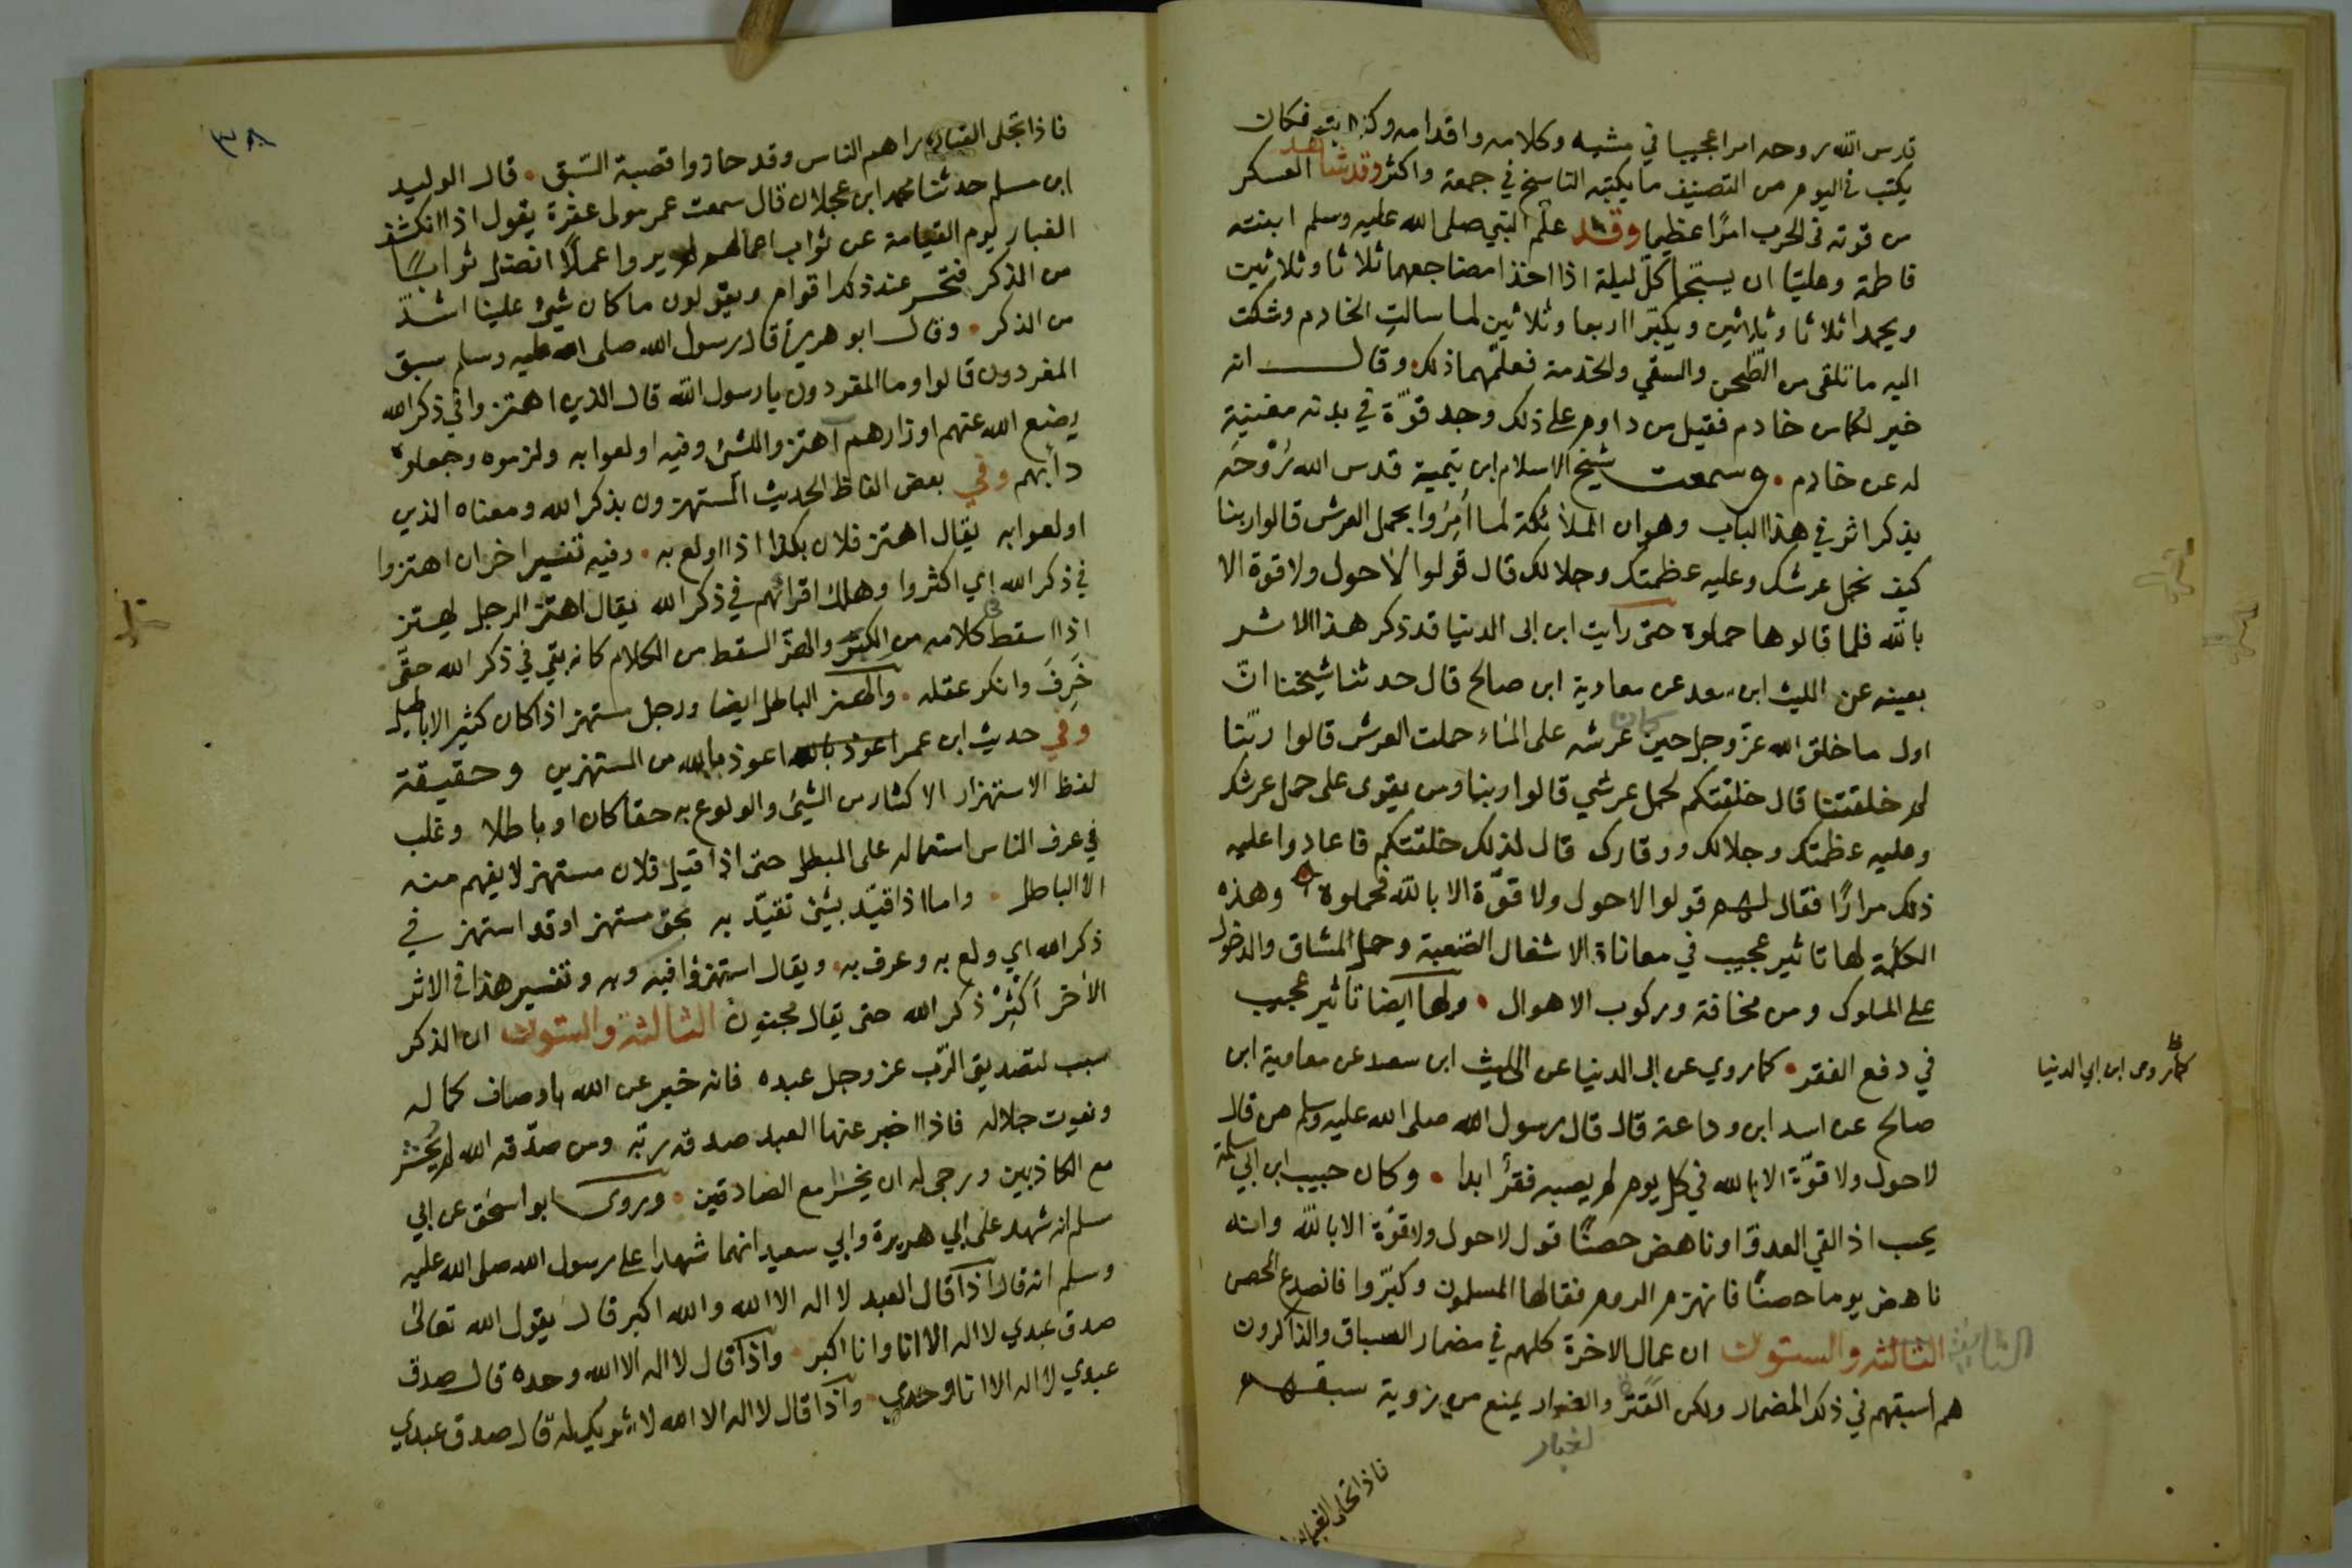 قدس الله روحه امرا عجيبا في مشيه وكلامه واقدامه وكتابته فكان
يكتب في اليوم من التصنيف ما يكتبه الناسخ في جمعة واكثر وقد شاهد العسكر
من قوته في الحرب امرًا عظيما وقد علّم النبي صلى الله عليه وسلم ابنته
فاطمة وعليًا ان يسبّحا كلّ ليلة اذا اخذا مضاجعهما ثلاثا وثلاثين
ويحمدا ثلاثا وثلاثين ويكبّرا اربعا وثلاثين لما سالت الخادم وشكت
اليه ما تلقى من الطّحن والسقي والخدمة فعلّمهما ذلك وقال انه
خير لكما من خادم فقيل من داوم على ذلك وجد قوّة في بدنه مغنية
له عن خادم . وسمعت شيخ الاسلام ابن تيمية قدس الله رُوْحَه
يذكر اثر في هذا الباب وهو ان الملائكة لما أُمِرُوا بحمل العرش قالوا ربنا
كيف نحمل عرشك وعليه عظمتك وجلالك قال قولوا لا حول ولا قوة الا
بالله فلما قالوها حملوه حتى رايت ابن ابى الدنيا قد ذكر هذا الاثر
بعينه عن الليث ابن سعد عن معاوية ابن صالح قال حدثنا شيختنا انّ
اول ما خلق الله عزّ وجل حين كان عرشه على الماء حملت العرش قالوا ربّنا
لم خلقتنا قال خلقتكم لحمل عرشي قالوا ربنا ومن يقوى على حمل عرشك
وعليه عظمتك وجلالك ووقارك قال لذلك خلقتكم فاعادوا عليه
ذلك مرارًا فقال لهم قولوا لا حول ولا قوّة الا بالله فحملوه وهذه
الكلمة لها تاثير عجيب في معاناة الاشغال الصّعبة وحمل المشاق والدخول
على الملوك ومن مخافة وركوب الاهوال . ولها ايضا تاثير عجيب
في دفع الفقر . كما روي عن ابى الدنيا عن الليث ابن سعد عن معاوية ابن
كما روى ابن ابي الدنيا
صالح عن اسد ابن وداعة قال قال رسول الله صلى الله عليه وسلم من قال
لا حول ولا قوّة الا بالله في كل يوم لم يصبه فقرٌ ابدا . وكان حبيب ابن ابي سلمة
يحب اذ القي العدو او ناهض حصنًا قول لا حول ولا قوّة الا بالله وانه
ناهض يوما حصنًا فانهزم الروم فقالها المسلمون وكبّروا فانصدع الحصن
الثانية
الثالثة والستون ان عمال الاخرة كلهم في مضمار السباق والذاكرون
هم اسبقهم في ذلك المضمار ولكن القترة والغبار يمنع من رؤية سبقهم
لغبار
فاذا تجلى الغبار
٣٨
فاذا تجلى الغبار راهم الناس وقد حازوا قصبة السّبق . قال الوليد
ابن مسلم حدثنا محمد ابن عجلان قال سمعت عمر مولى عفرة يقول اذا انكشف
الغبار ليوم القيامة عن ثواب اعمالهم لم يروا عملًا افضل ثوابًا
من الذكر فتحسر عند ذلك اقوام ويقولون ما كان شيئ علينا اشدّ
من الذكر . وقال ابو هريرة قال رسول الله صلى الله عليه وسلم سبق
المفردون قالوا وما المفردون يا رسول الله قال الذين اهتزوا في ذكر الله
يضع الله عنهم اوزارهم اهتزوا للشئ وفيه اولعوا به ولزموه وجعلوه
دأبهم وفي بعض الفاظ الحديث المستهزون بذكر الله ومعناه الذين
اولعوا به يقال اهتز فلان بكذا اذا اولع به . وفيه تفسير اخر ان اهتزوا
في ذكر الله اي اكثروا وهلك اقرانهم في ذكر الله يقال اهتز الرجل يهتز
اذا اسقط كلامه من الكبر والهتر السقط من الكلام كانه بقي في ذكر الله حتى
خَرِفَ وانكر عقله . والهتر الباطل ايضا ورجل مستهتر اذا كان كثير الاباطيل
وفي حديث ابن عمر اعوذ بالله اعوذ بالله من المستهزين وحقيقة
لفظ الاستهزار الاكثار من الشيئ والولوع به حقا كان او باطلا وغلب
في عرف الناس استعماله على المبطل حتى اذا قيل فلان مستهتر لا يفهم منه
الا الباطل . واما اذا قيّد بشئ تقيّد به بحق مستهتر او قد استهتر في
ذكر الله اي ولع به وعرف به . ويقال استهزوا فيه وبه وتفسير هذا في الاثر
الأخر أكثِرْ ذكر الله حتى يقال مجنون الثالثة والستون ان الذكر
سبب لتصديق الرّب عز وجل عبده فانه خبر عن الله باوصاف كماله
ونعوت جلاله فاذا اخبر عنها العبد صدقه ربّه ومن صدّقه الله لم يُحشر
مع الكاذبين ورجى له ان يحشر مع الصادقين . وروى ابو اسحق عن ابي
سلم انه شهد على ابي هريرة وابي سعيد انهما شهدا على رسول الله صلى الله عليه
وسلم انه قال اذا قال العبد لا اله الا الله والله اكبر قال يقول الله تعالى
صدق عبدي لا اله الا انا وانا اكبر . واذا قال لا اله الا الله وحده قال صدق
عبدي لا اله الا انا وحدي . واذا قال لا اله الا الله لا شريك له قال صدق عبدي